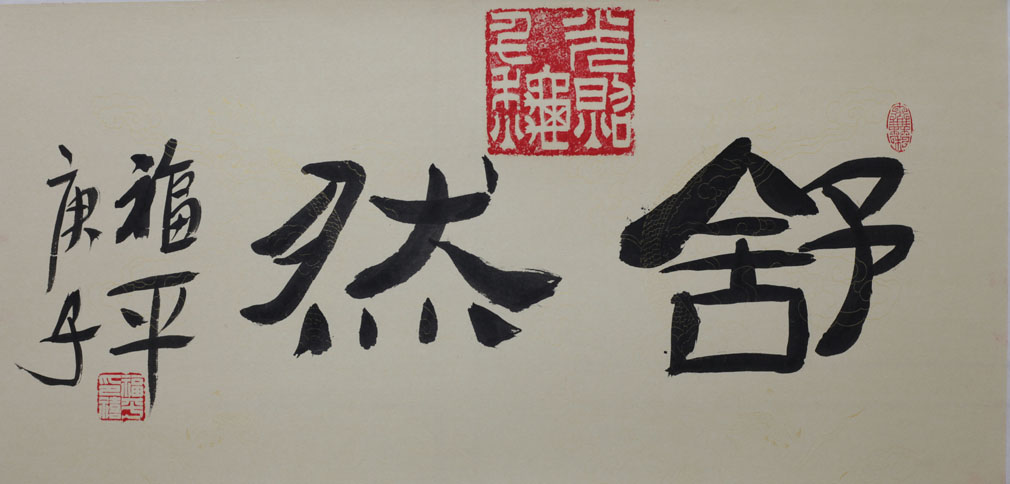 舒然
福平
庚子